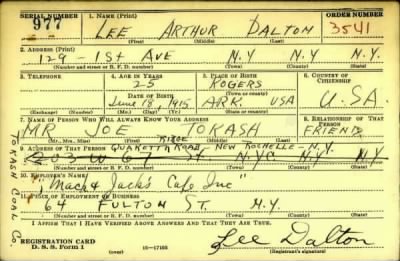 SERIAL NUMBER 1. NAME (Print) ORDER NUMBER
977 LEE ARTHUR DALTON 3541
(First) (Middle) (Last)
2. ADDRESS (Print)
129 - 1st AVE N.Y. N.Y. N.Y.
(Number and street or R. F. D. number) (Town) (County) (State)
3. TELEPHONE 4. AGE IN YEARS 5. PLACE OF BIRTH 6. COUNTRY OF CITIZENSHIP
25 ROGERS
DATE OF BIRTH (Town or county)
June 18, 1915 ARK. USA U.S.A.
(Exchange) (Number) (Mo.) (Day) (Yr.) (State or country)
7. NAME OF PERSON WHO WILL ALWAYS KNOW YOUR ADDRESS 8. RELATIONSHIP OF THAT PERSON
MR JOE TOKASH FRIEND
(Mr., Mrs., Miss) (First) (Middle) (Last)
9. ADDRESS OF THAT PERSON ROAD - NEW ROCHELLE - N.Y.
203 W 67 St NYC N.Y.
(Number and street or R. F. D. number) (Town) (County) (State)
10. EMPLOYER'S NAME
"Mack & Jack's Cafe Inc"
11. PLACE OF EMPLOYMENT OR BUSINESS
64 FULTON ST. N.Y.
(Number and street or R. F. D. number) (Town) (County) (State)
I AFFIRM THAT I HAVE VERIFIED ABOVE ANSWERS AND THAT THEY ARE TRUE.
REGISTRATION CARD
D. S. S. Form 1 (over) 16-17105 Lee Dalton
(Registrant's signature)
TOKASH COAL Co.